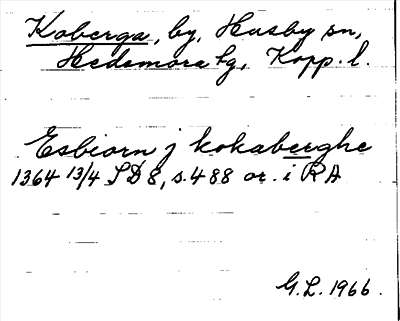 Koberga, by, Husby sn,
Hedemora tg, Kopp. l.
Esbiorn j kokaberghe
1364 13/4 SD 8, s. 488 or. i RA
G.L. 1966.